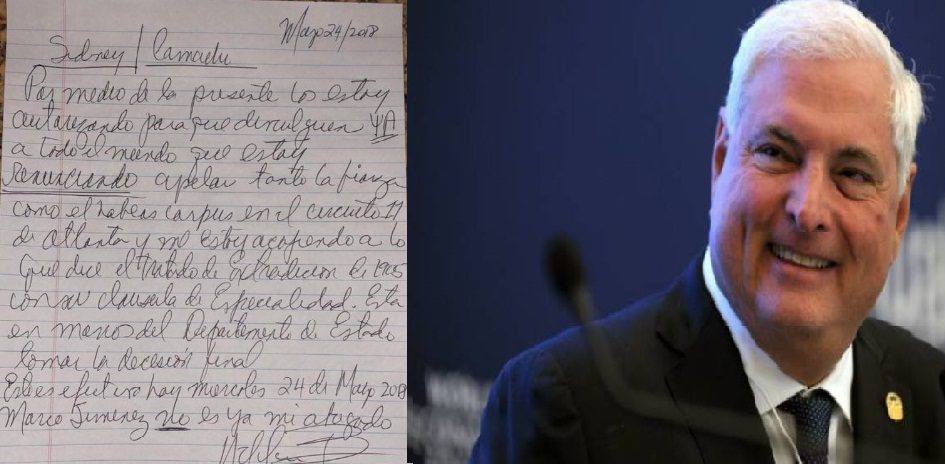 Mayo 24/2018
Sidney / Camacho
Por medio de la presente los estoy
autorizando para que divulguen YA
a todo el mundo que estoy
renunciando apelar tanto la fianza
como el habeas corpus en el circuito 11
de atlanta y me estoy acogiendo a lo
que dice el tratado de Extradicion de 1905
con su clausula de Especialidad. Esta
en manos del Departamento de Estado
tomar la decision final
Este es efectivo hoy miercoles 24 de Mayo 2018
Mario Jimenez no es ya mi abogado